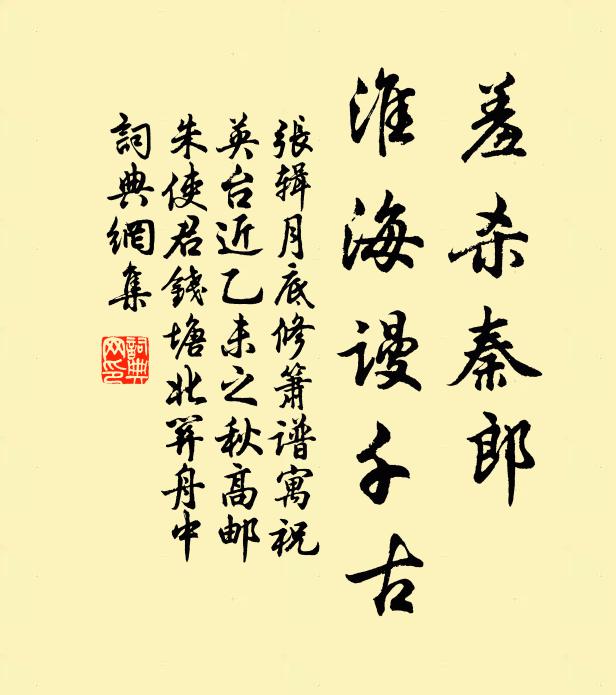 羞杀秦郎
淮海谩千古
張辑月底修箫谱寓祝
英台近乙未之秋高邮
朱使君錢塘北関舟中
詞典網集
詞典
网印